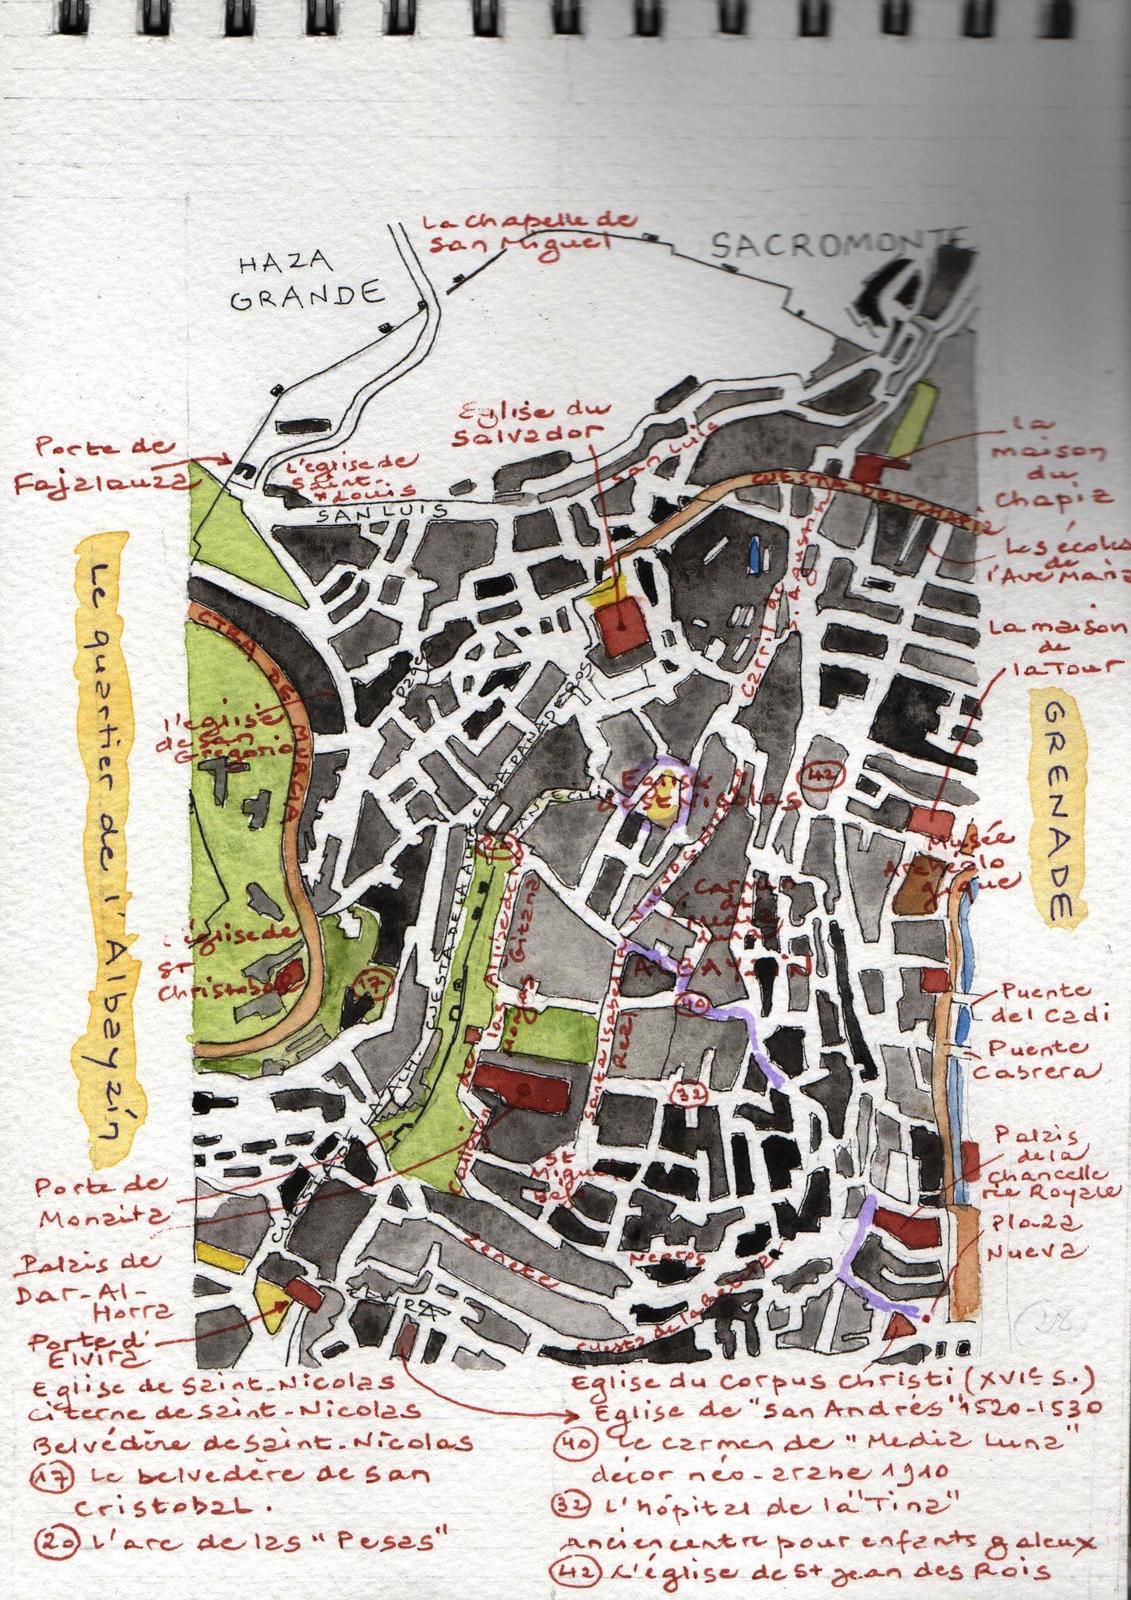 La chapelle de
San Miguel
SACROMONTE
HAZA
GRANDE
Eglise du
Salvador
SAN LUIS
Porte de
Fajalauza
L'église de
Saint-
Louis
SAN LUIS
CUESTA DEL CHAPIZ
La
maison
du
Chapiz
Les écoles
de
l'Ave Maria
La maison
de
la Tour
Carril de
S. Agustin
Le quartier de l'Albayzín
GRENADE
CTRA DE MURCIA
l'église
de San
Gregorio
PANADEROS
Eglise
de St Nicolas
42
20
Musée
Archéolo
gique
Carmen
de
Media
Luna
NUEVO
ALBAYZIN
CUESTA DE LA ALHACABA
Callejón de las Monjas
Gitana
Santa Isabel la
Real
l'église de
St
Christobal
17
40
32
Puente
del Cadi
Puente
Cabrera
Palais
de la
chancelle
rie Royale
Plaza
Nueva
St
Migu
Bajo
Zenete
Negros
Cuesta de la
ELVIRA
Porte de
Monaita
Palais de
Dar-Al-
Horra
Porte d'
Elvira
Eglise de Saint-Nicolas
Citerne de Saint-Nicolas
Belvédère de Saint-Nicolas
17 Le belvedère de San
Cristobal.
20 L'arc de las "Pesas"
Eglise du Corpus Christi (XVIe s.)
Eglise de "San Andrés" 1520-1530
40 Le carmen de "Media Luna"
décor néo-arabe 1910
32 L'hôpital de la "Tina"
ancien centre pour enfants galeux
42 L'église de St Jean des Rois